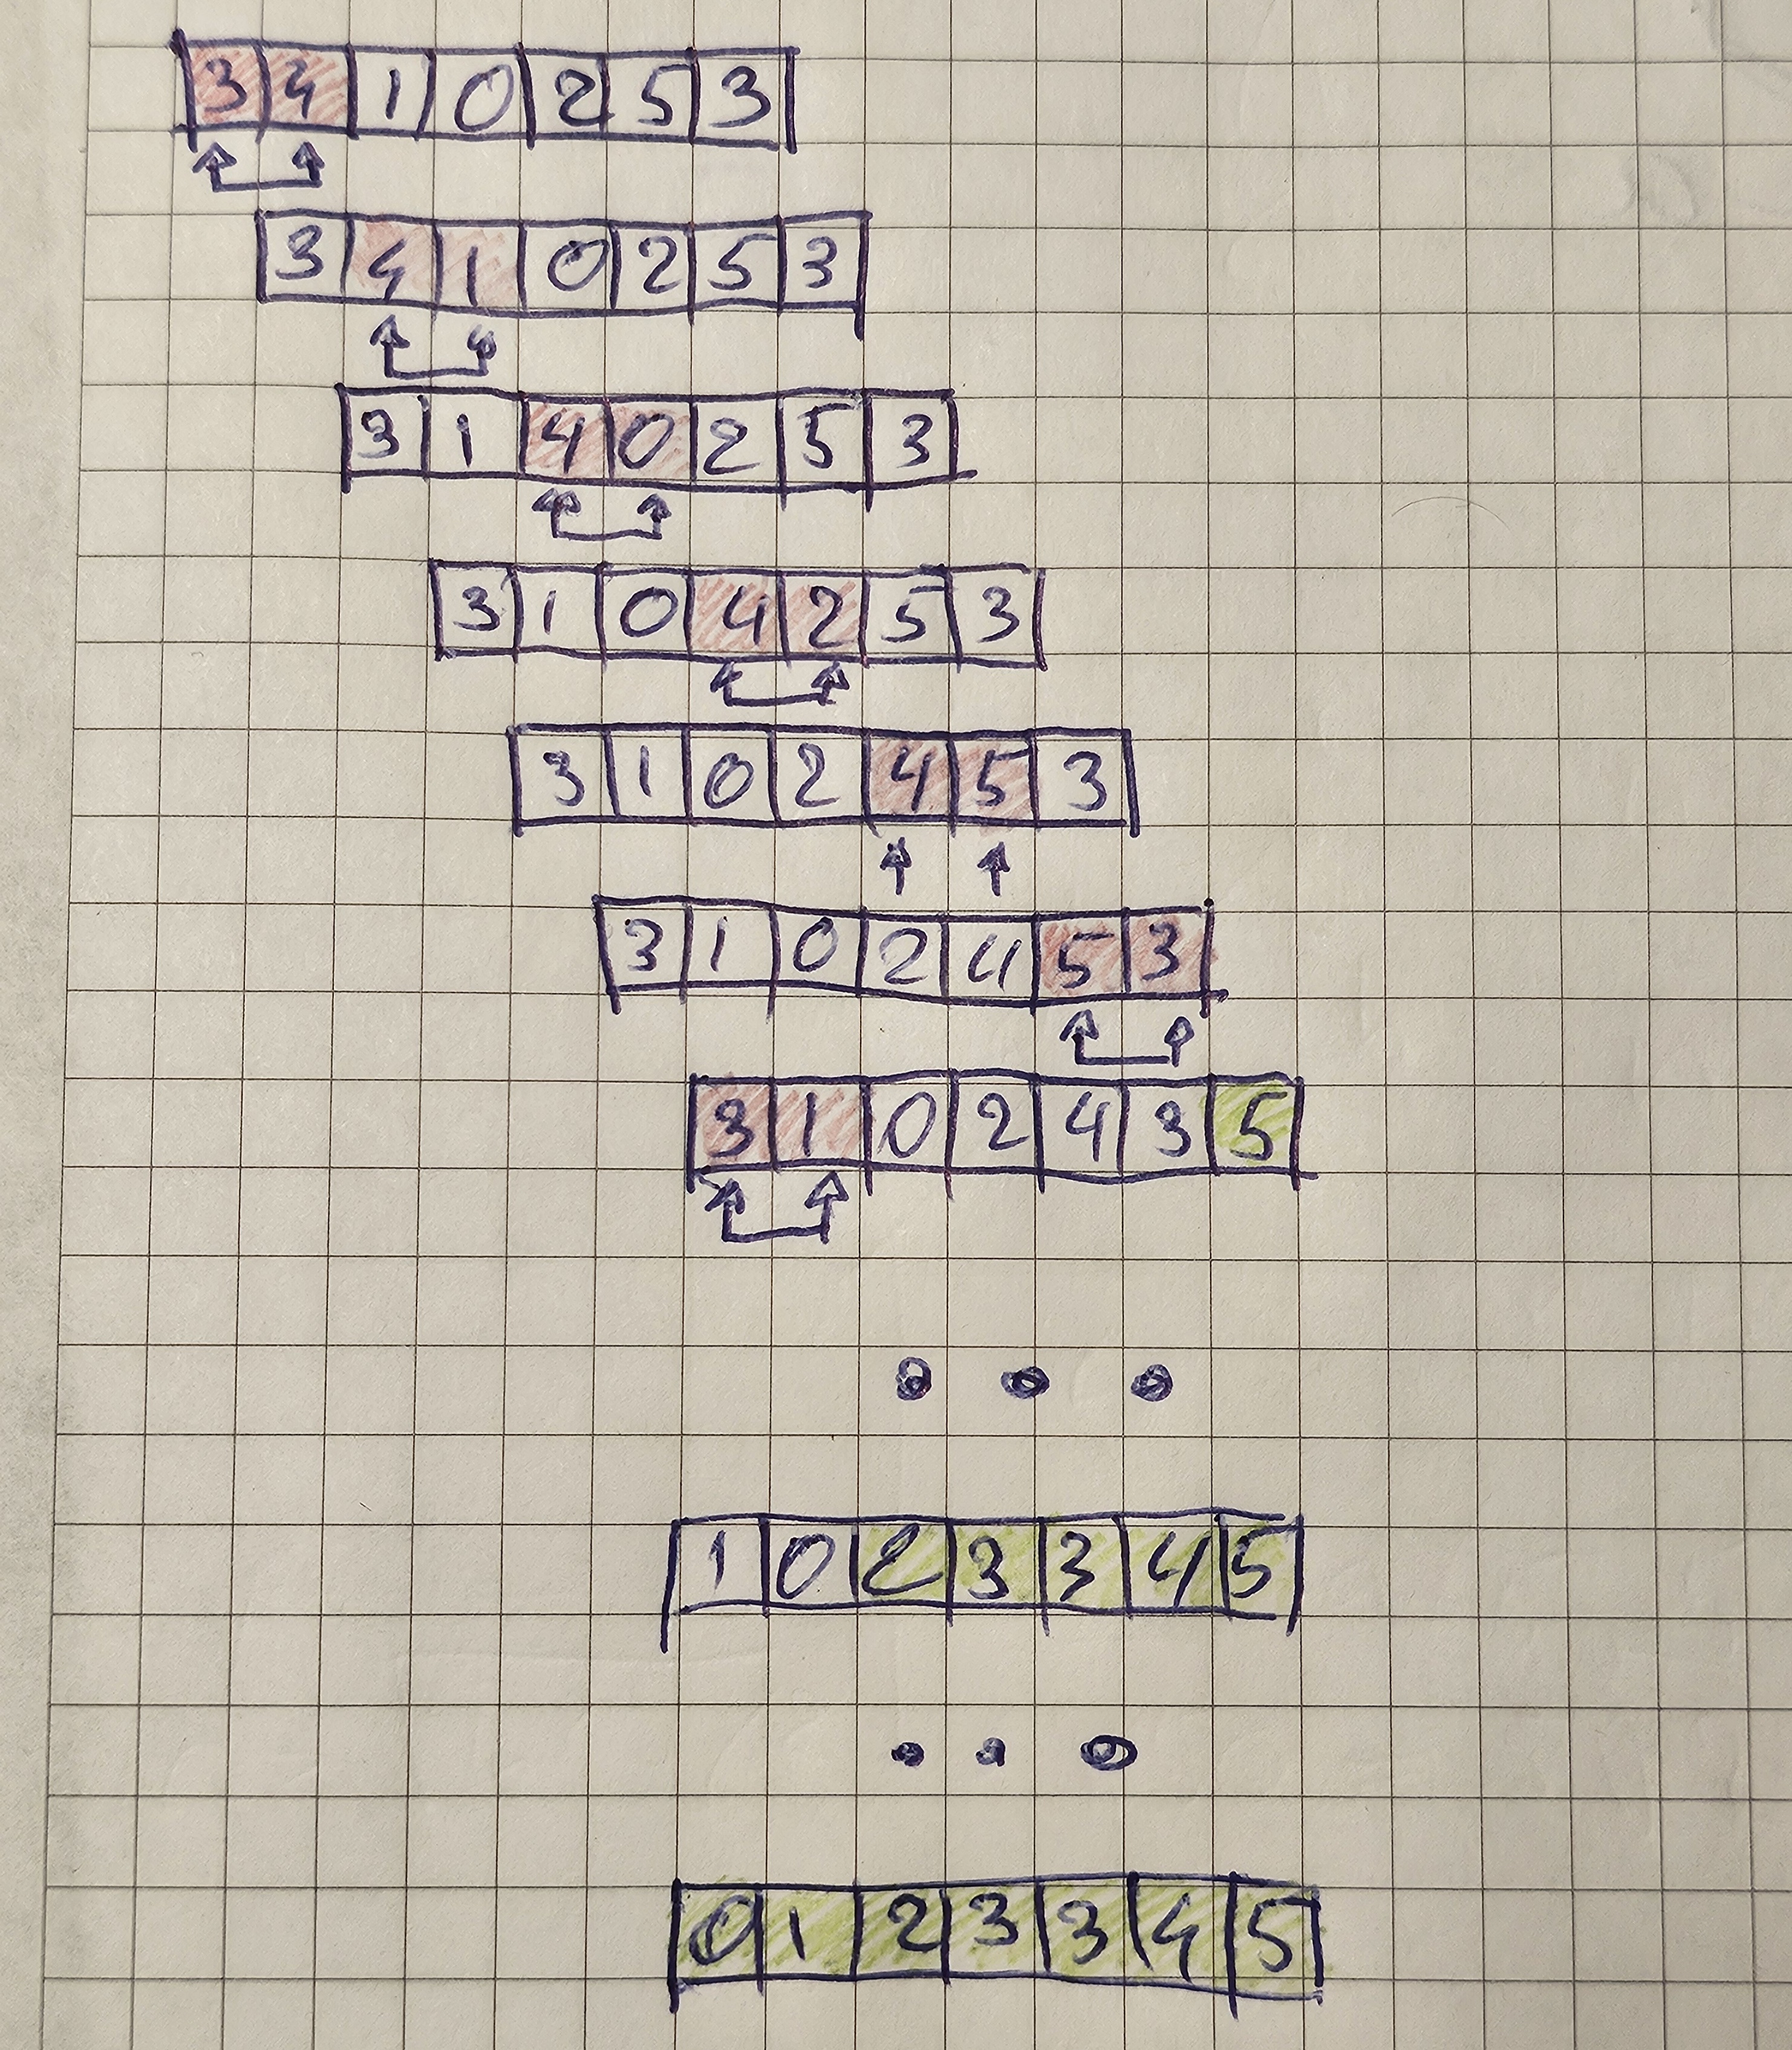 3 4 1 0 2 5 3
3 4 1 0 2 5 3
3 1 4 0 2 5 3
3 1 0 4 2 5 3
3 1 0 2 4 5 3
3 1 0 2 4 5 3
3 1 0 2 4 3 5
• • •
1 0 2 3 3 4 5
• • •
0 1 2 3 3 4 5